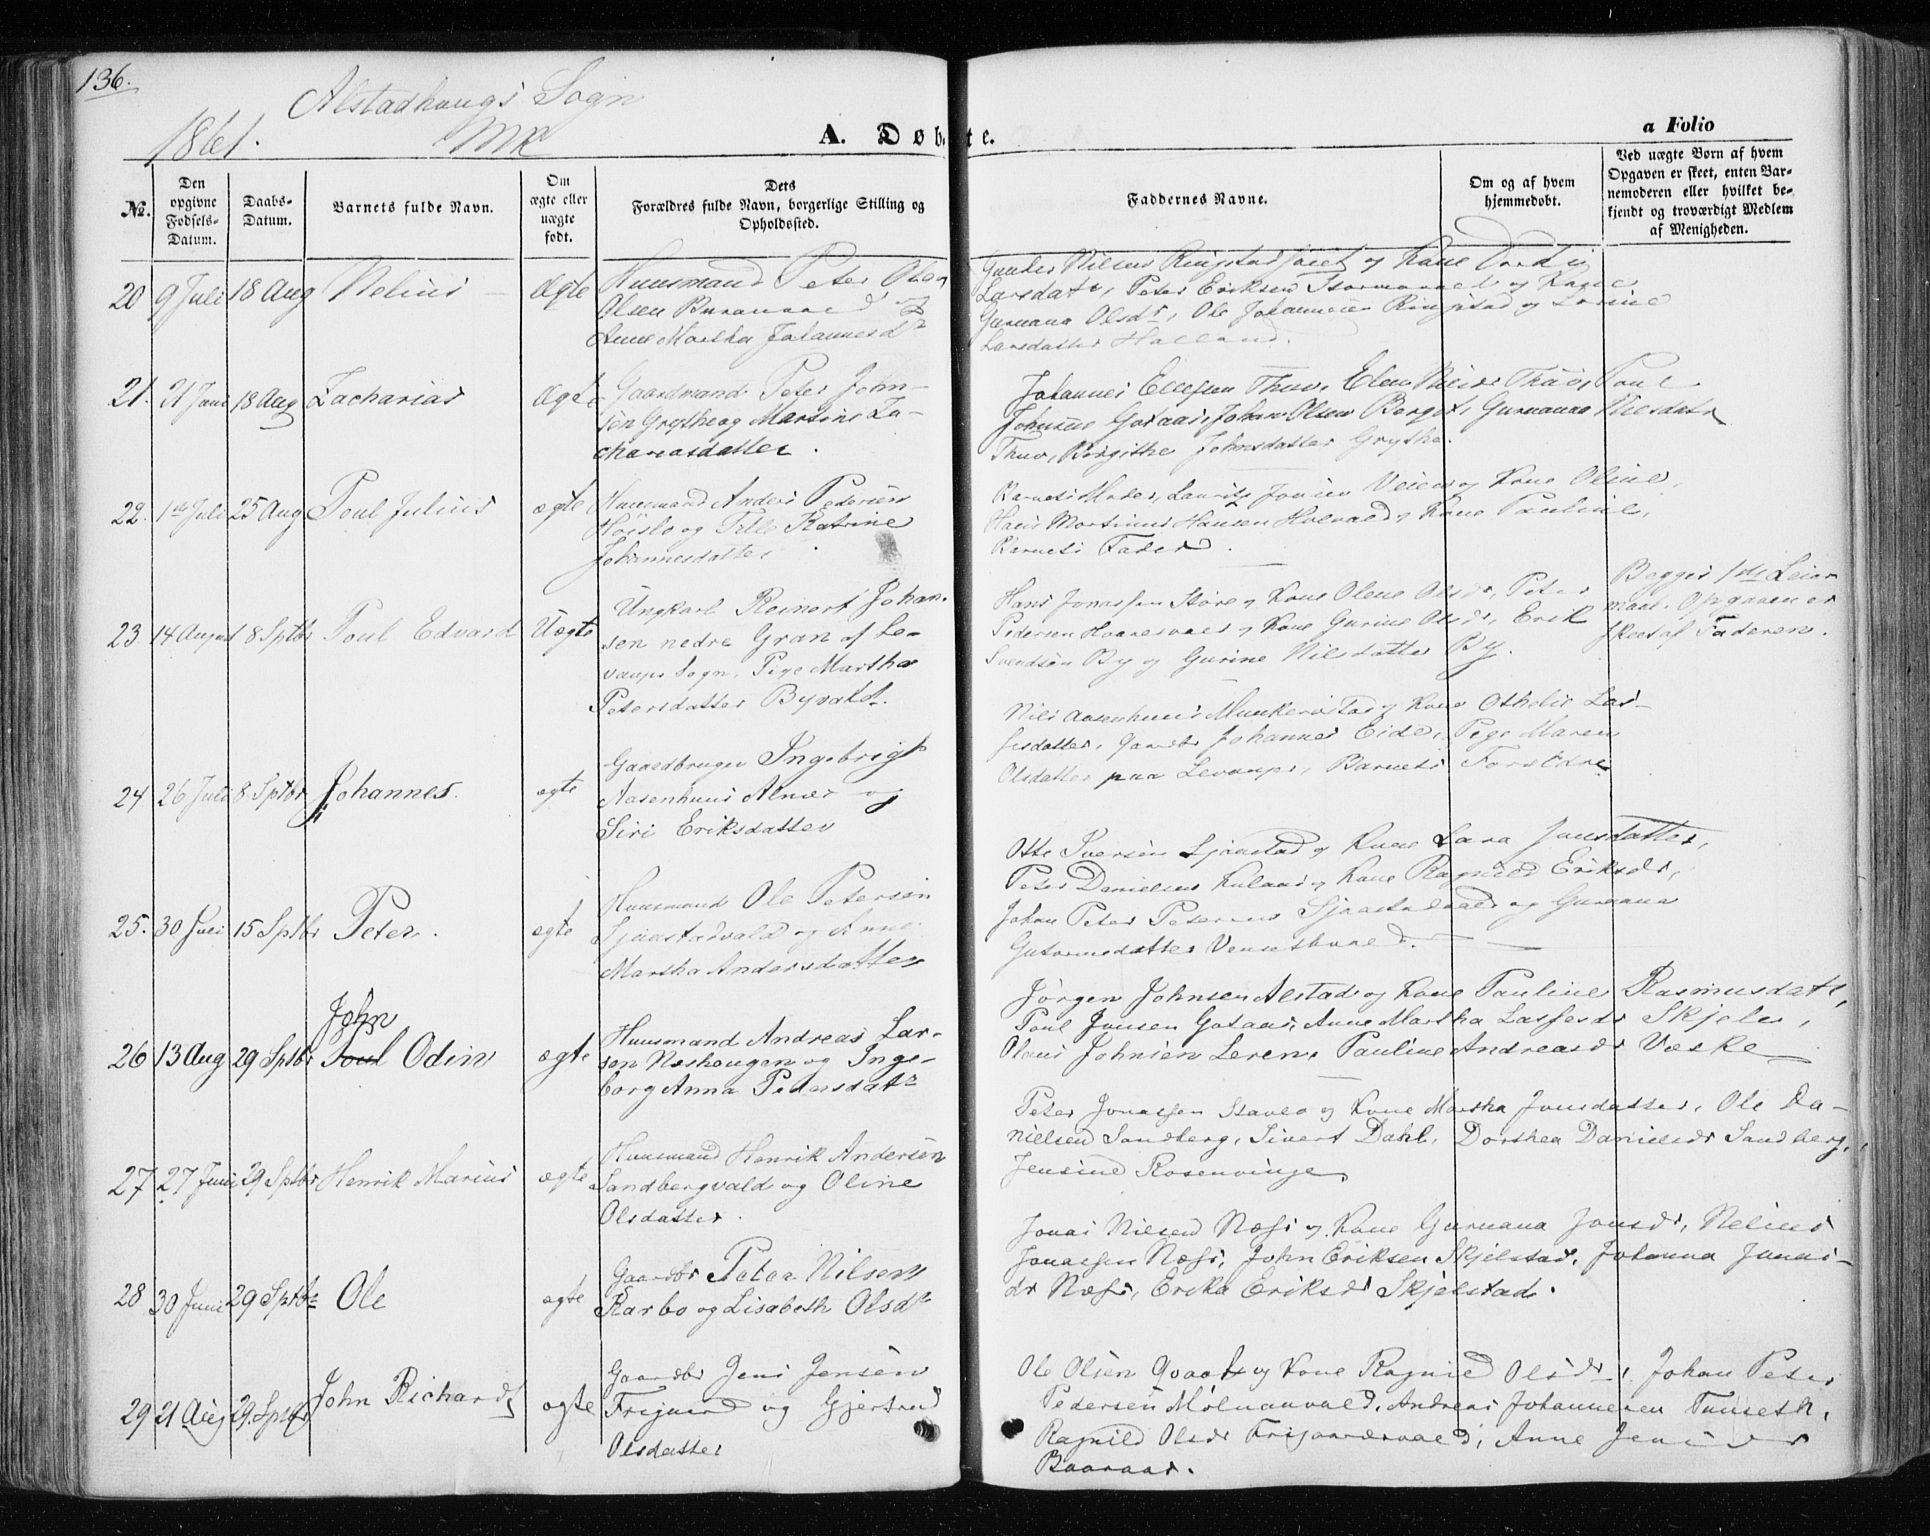 136.
Alstadhougs Sogn
1861. MK
A. Døbte.
a Folio
No.
Den opgivne Fødsels-Datum.
Daabs-Datum.
Barnets fulde Navn.
Om ægte eller uægte født.
Dets Forældres fulde Navn, borgerlige Stilling og Opholdssted.
Faddernes Navne.
Om og af hvem hjemmedøbt.
Ved uægte Børn af hvem Opgaven er skeet, enten Barnemoderen eller hvilket bekjendt og troværdigt Medlem af Menigheden.
20 9 Juli 18 Aug Nelius Ægte
Huusmand Peter
Olsen og
Anne Martha Johannesdr
Nilsen Ringstad og Kone
Larsdatr, Peter Eriksen og Kone
Guruana Olsdr, Ole Johannesen Ringstad og
Larsdatter Holland.
21. 21 Juni 18 Aug Zacharias Ægte
Gaardmand Peter John-
sen Grythe og Martine Za-
chariasdatter.
Johannes Ellefsen Thuv, Elen Thuv, Poul
Johnsen Gotaas, Johan Olsen Berget, Guruana Nilsdatr
Thuv, Birgithe Johnsdatter Grythe.
22. 1ste Juli 25 Aug Poul Julius ægte
Huusmand Anders Pedersen
og Katrine
Johannesdatter.
Barnets Moder, Laurits og Kone Oline,
Hans Martinus Hansen og Kone Pauline,
Barnets Fader.
23 14 August 8 Sptbr Poul Edvard Uægte
Ungkarl Reinert Johan-
sen nedre Gran af Le-
vanger Sogn, Pige Martha
Petersdatter Byvald.
Hans Jonassen Støre og Kone Olene Olsdr, Peter
Pedersen og Kone Gurine Olsdr, Erik
Svendsen By og Gurine Nilsdatter By.
Begges 1ste Leier-
maal. Opgaven er
skeet af Faderen.
24 26 Juli 8 Sptbr Johannes. ægte
Gaardbruger Ingebrigt
Aasenhuus Alnæs og
Siri Eriksdatter
Nils Aasenhuus og Kone Othelie Las-
sesdatter, Gaardbr Johannes Eide, Pige Maren
Olsdatter paa Levanger, Barnets Forældre
25. 30 Juli 15 Sptbr Peter. ægte
Huusmand Ole Petersen
Sjaastadvald og Anne
Martha Andersdatter
Otte Iversen Sjaastad og Kone Sara Jonsdatter,
Peter Danielsen og Kone Ragnild Eriksdr,
Johan Peter Petersen Sjaastadvald og Guruana
Gutormsdatter
26 13 Aug 29 Sptbr John Poul Odin ægte
Huusmand Andreas Lar-
sen Neshaugen og Inge-
borg Anna Pedersdatr
Jørgen Johnsen Alstad og Kone Pauline Rasmusdatr,
Poul Jonsen Gotaas, Anne Martha Lassesdr Skjele,
Olaus Johnsen Leren, Pauline Andreasdr Veske
27 27 Juni 29 Sptbr Henrik Marius ægte
Huusmand Henrik Andersen
Sandbergvald og Oline
Olsdatter.
Peter Jonassen Stavlo og Kone Martha Jonsdatter, Ole Da-
nielsen Sandberg, Sivert Dahl, Dorthea Danielsdr Sandberg,
Jensine Rosenvinge
28 30 Juni 29 Sptbr Ole ægte
Gaardbr Peter Nilsen
Karbo og Lisabeth Olsdr
Jonas Nilsen Næss og Kone Guruana Jonsdr, Nelius
Jonassen Næss, John Eriksen Skjelstad, Johanna Jonas-
dr Næss, Erika Eriksdr Skjelstad.
29 21 Aug 29. Sptbr John Richard ægte
Gaardbr Jens Jensen
Frigaard og Gjertrud
Olsdatter
Ole Olsen og Kone Ragnild Olsdr, Johan Peter
Pedersen Mølnanvald, Andreas Johannesen Tunseth,
Ragnild Olsdr Frigaardsvald, Anne